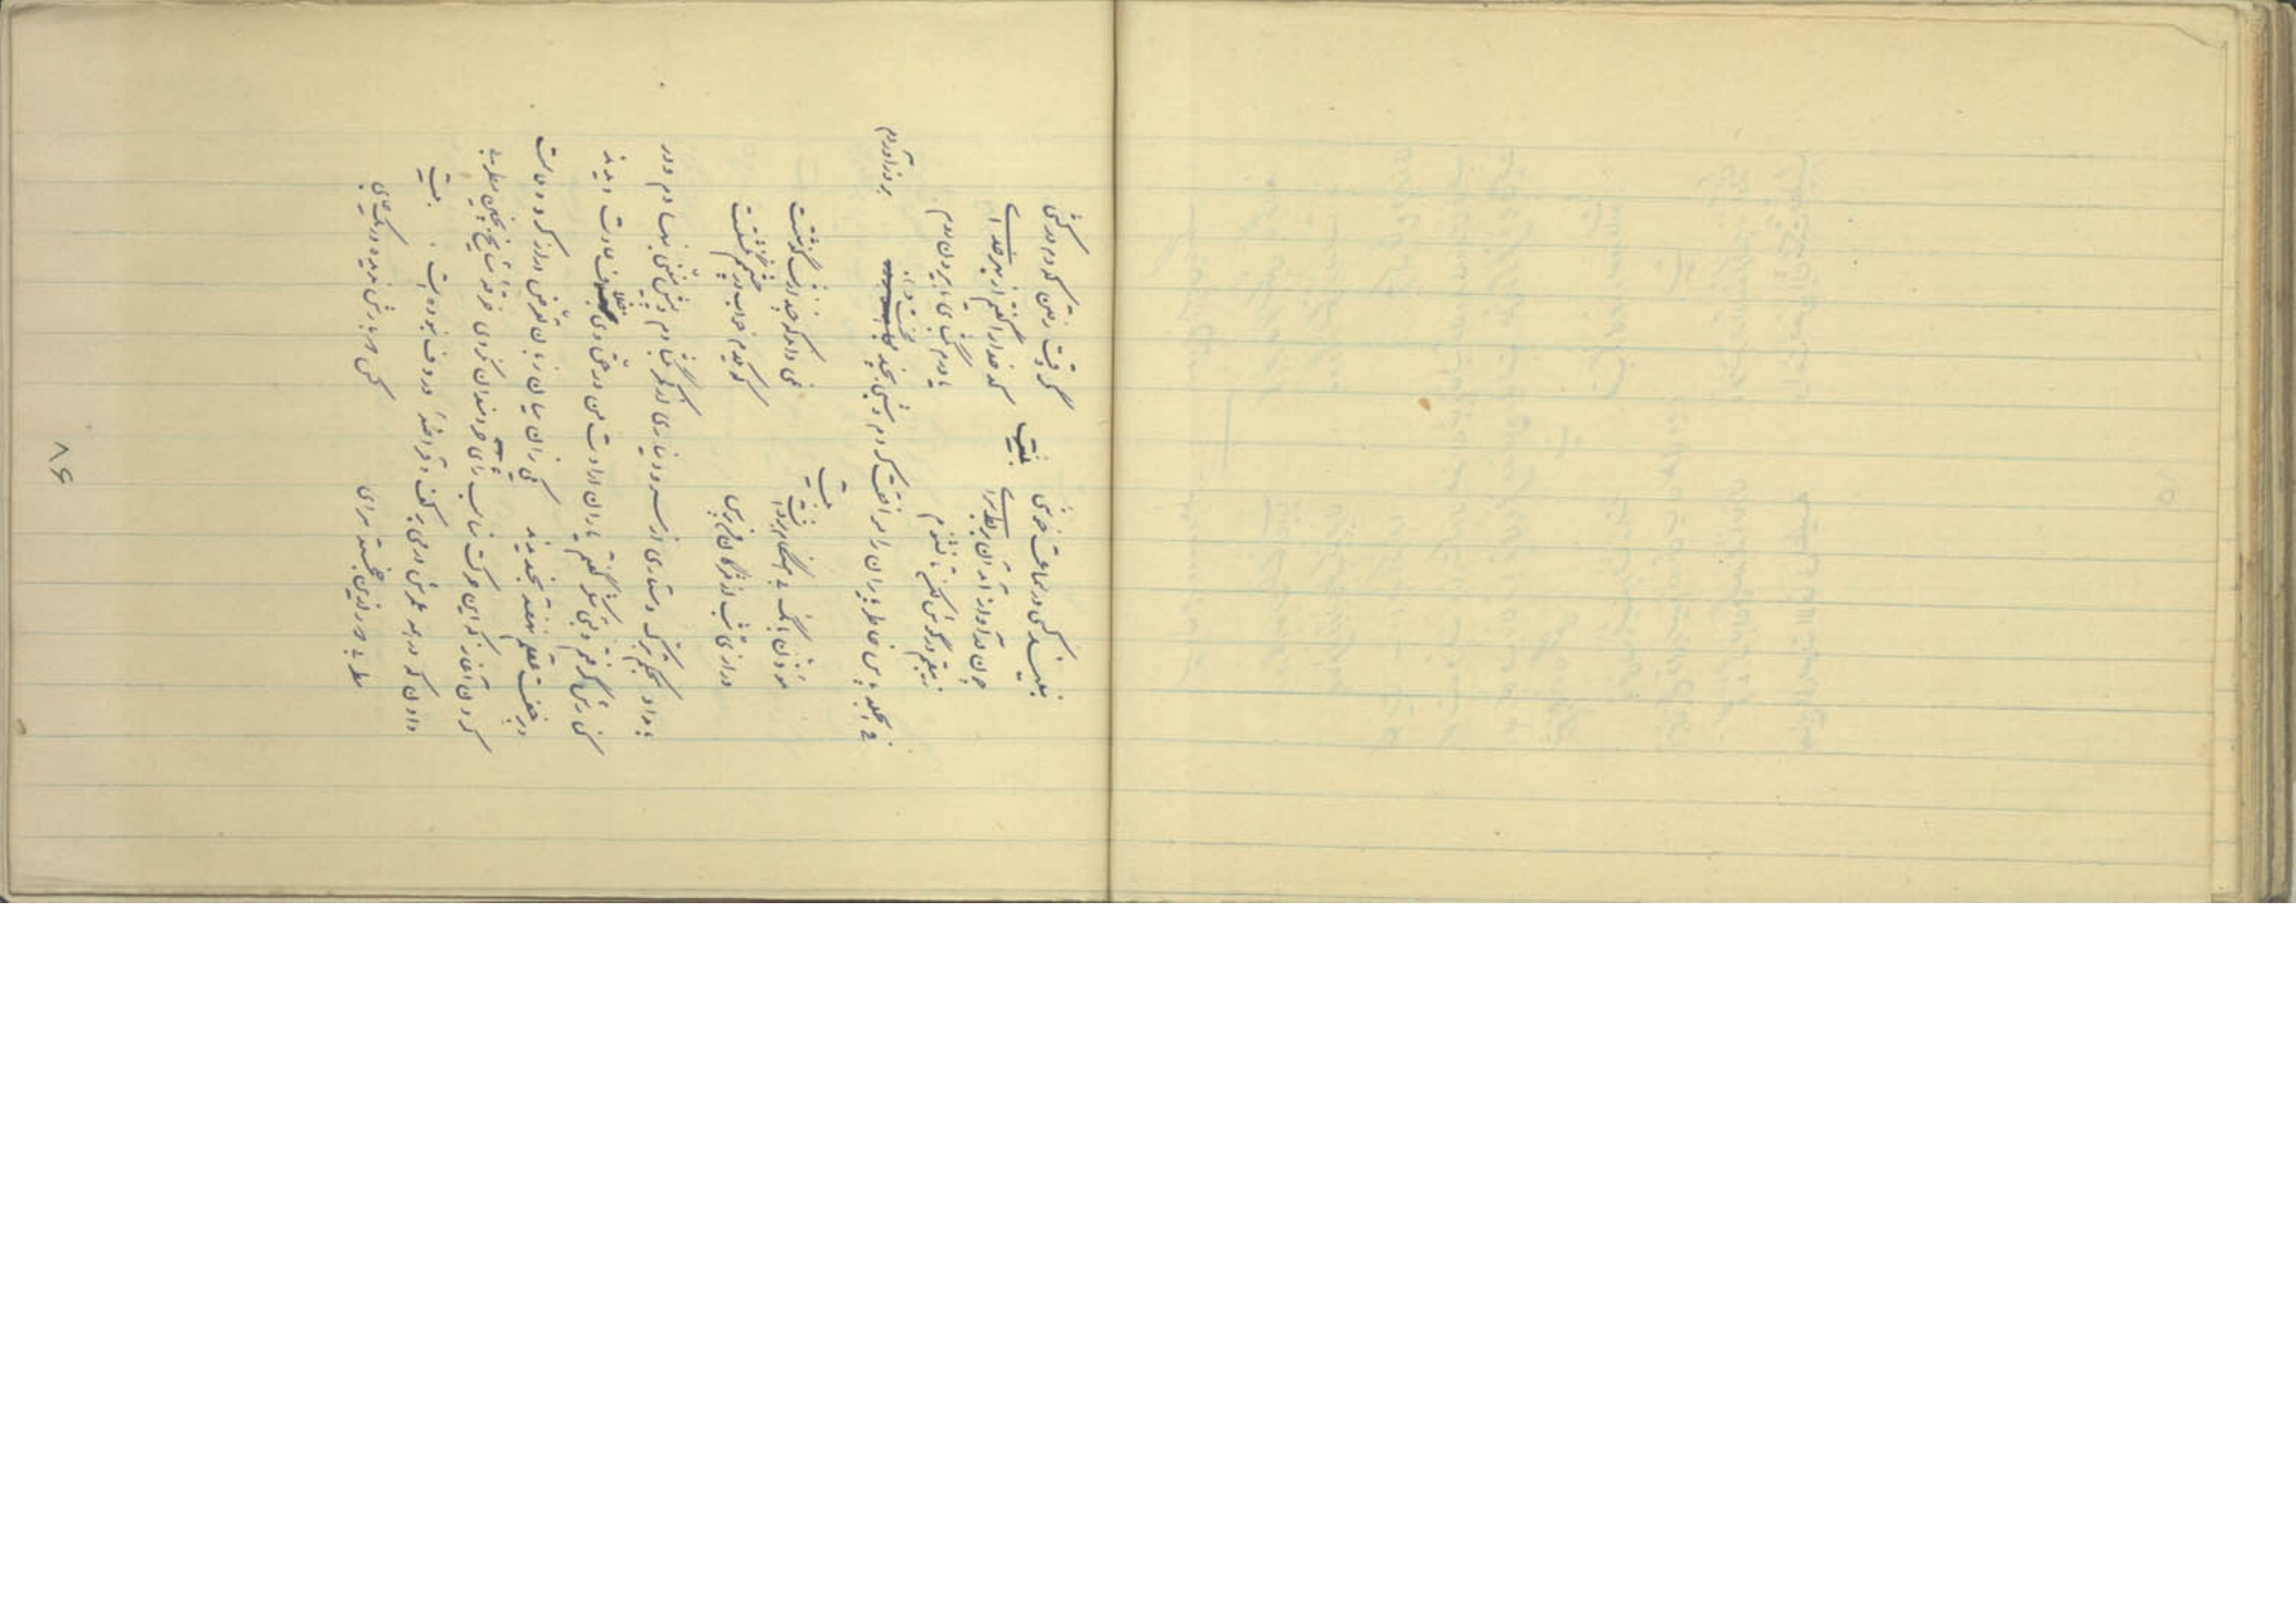 نبیند کسی در سماعت خوشی مگر وقت رفتن که دم درکشی
چون در آواز آمد آن بربط سرای کدخدا را گفتم از بهر خدای
زیبقم در گوش کن تا نشنوم یا درم بگشای تا بیرون روم
فی الجمله پاس خاطر یاران را موافقت کردم و شبی بچند محنت بروز آوردم
بیت
مؤذن بانگ بی هنگام برداشت نمی داند که چند از شب گذشتست
درازی شب از مژگان من پرس که یکدم خواب در چشمم نگشتست
بامداد بحکم تبرک دستاری از سر و دیناری از کمر بگشادم و پیش مغنی نهادم و در
کنارش گرفتم و بسی شکر گفتم یاران ارادت من در حق وی خلاف عادت دیدند
و بر خفت عقلم نهفته بخندیدند یکی زان میان زبان تعرض دراز کرد و ملامت
کردن آغاز که این حرکت مناسب رای خردمندان نکردی خرقه مشایخ بچنین مطربی
دادن که در همه عمرش درمی بر کف و قراضهٔ در دف نبوده است بیت
مطربی دور ازین خجسته سرای کس دوبارش ندیده در یک جای
۸۶